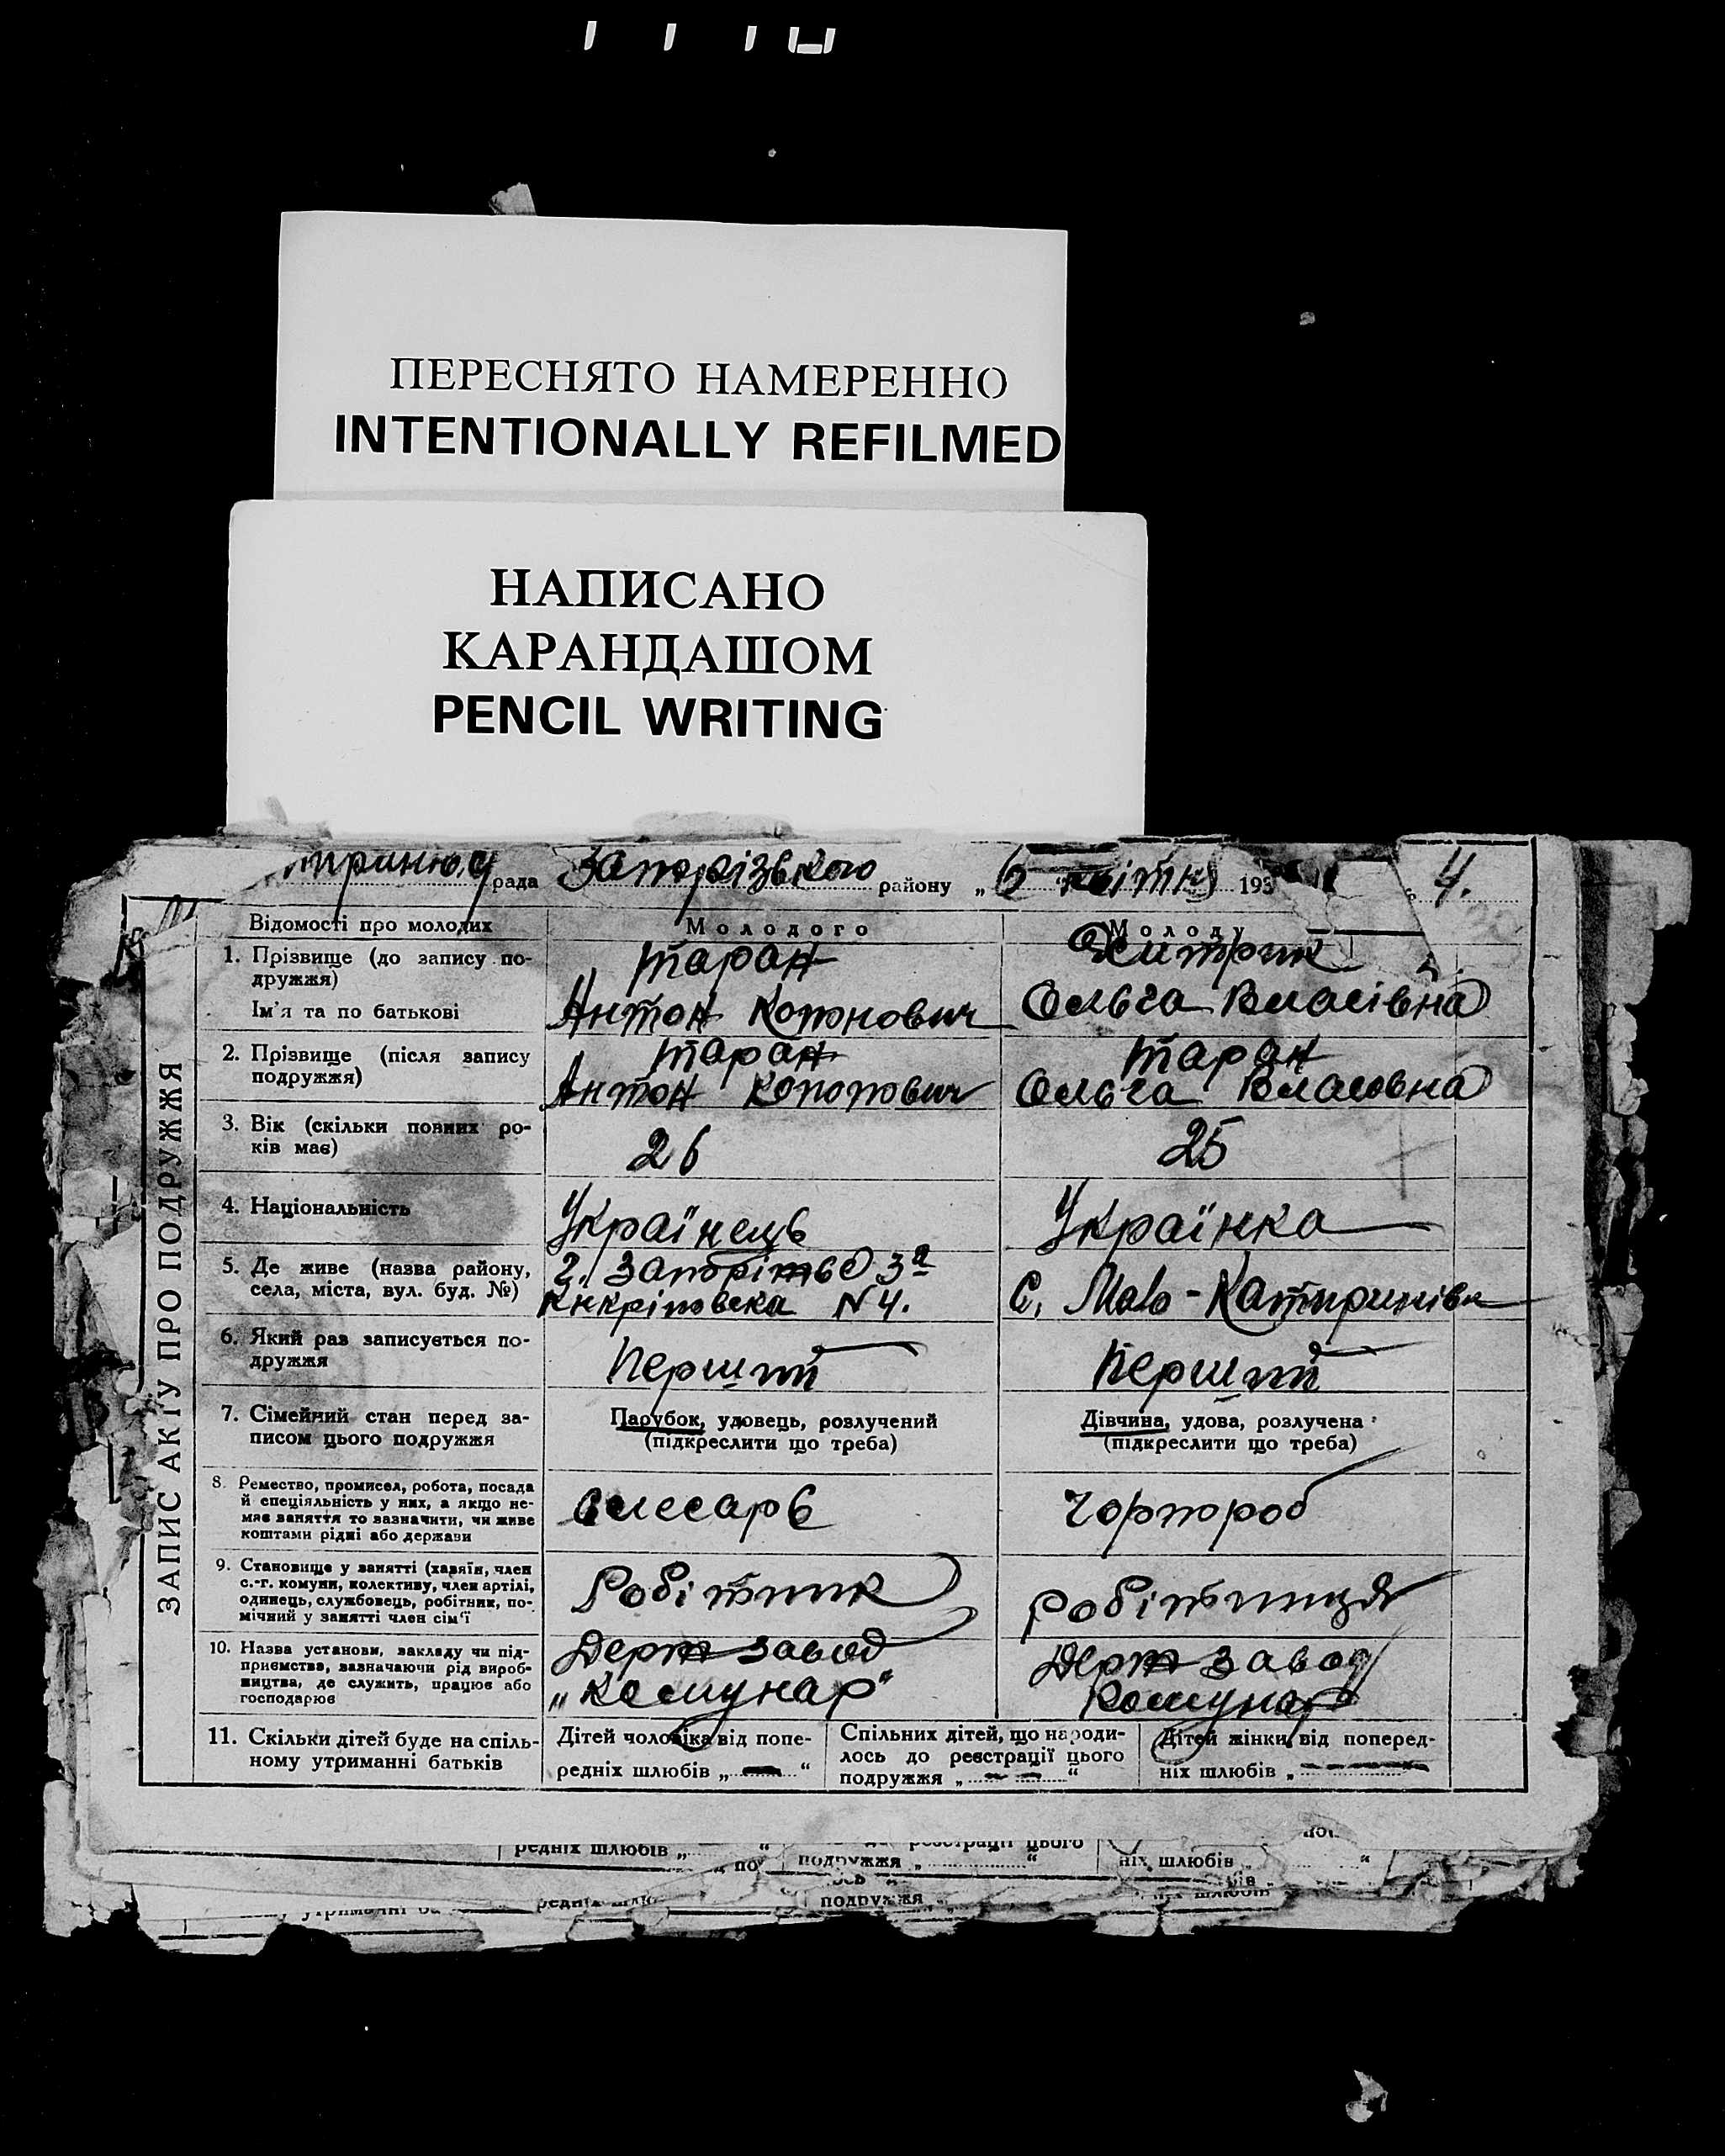 ПЕРЕСНЯТО НАМЕРЕННО
INTENTIONALLY REFILMED
НАПИСАНО
КАРАНДАШОМ
PENCIL WRITING
рада Запорізького району „6“ квітня 193 4.
ЗАПИС АКТУ ПРО ПОДРУЖЖЯ
Відомості про молодих
Молодого
Молоду
1. Прізвище (до запису по-
дружжя)
Ім'я та по батькові
Таран
Антон
Ольга Власівна
2. Прізвище (після запису
подружжя)
Таран
Антон
Таран
Ольга Власовна
3. Вік (скільки повних ро-
ків має)
26
25
4. Національність
Українець
Українка
5. Де живе (назва району,
села, міста, вул. буд. №)
N 4.
С. Мало-Катеринівк
6. Який раз записується по-
дружжя
Перший
Перший
7. Сімейний стан перед за-
писом цього подружжя
Парубок, удовець, розлучений
(підкреслити що треба)
Дівчина, удова, розлучена
(підкреслити що треба)
8. Ремество, промисел, робота, посада
й спеціяльність у них, а якщо не-
має заняття то зазначити, чи живе
коштами рідні або держави
слесарь
Чорнороб
9. Становище у занятті (хазяїн, член
с.-г. комуни, колективу, член артілі,
одинець, службовець, робітник, по-
мічний у занятті член сім'ї
Робітник
робітниця
10. Назва установи, закладу чи під-
приємства, зазначаючи рід вироб-
ництва, де служить, працює або
господарює
Держ завод
„Комунар“
Держ завод
Комунар
11. Скільки дітей буде на спіль-
ному утриманні батьків
Дітей чоловіка від попе-
редніх шлюбів „ — “
Спільних дітей, що народи-
лось до реєстрації цього
подружжя „ — — “
Дітей жінки від поперед-
ніх шлюбів „
редніх шлюбів „ “
подружжя „ “
ніх шлюбів „ “
подружжя